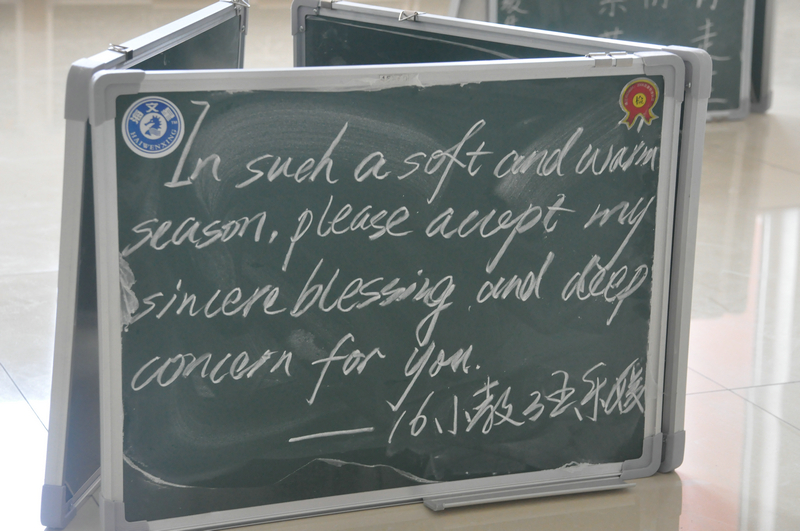 In such a soft and warm
season, please accept my
sincere blessing and deep
concern for you.
— 16小教3王乐媛
海文星
HAIWENXING